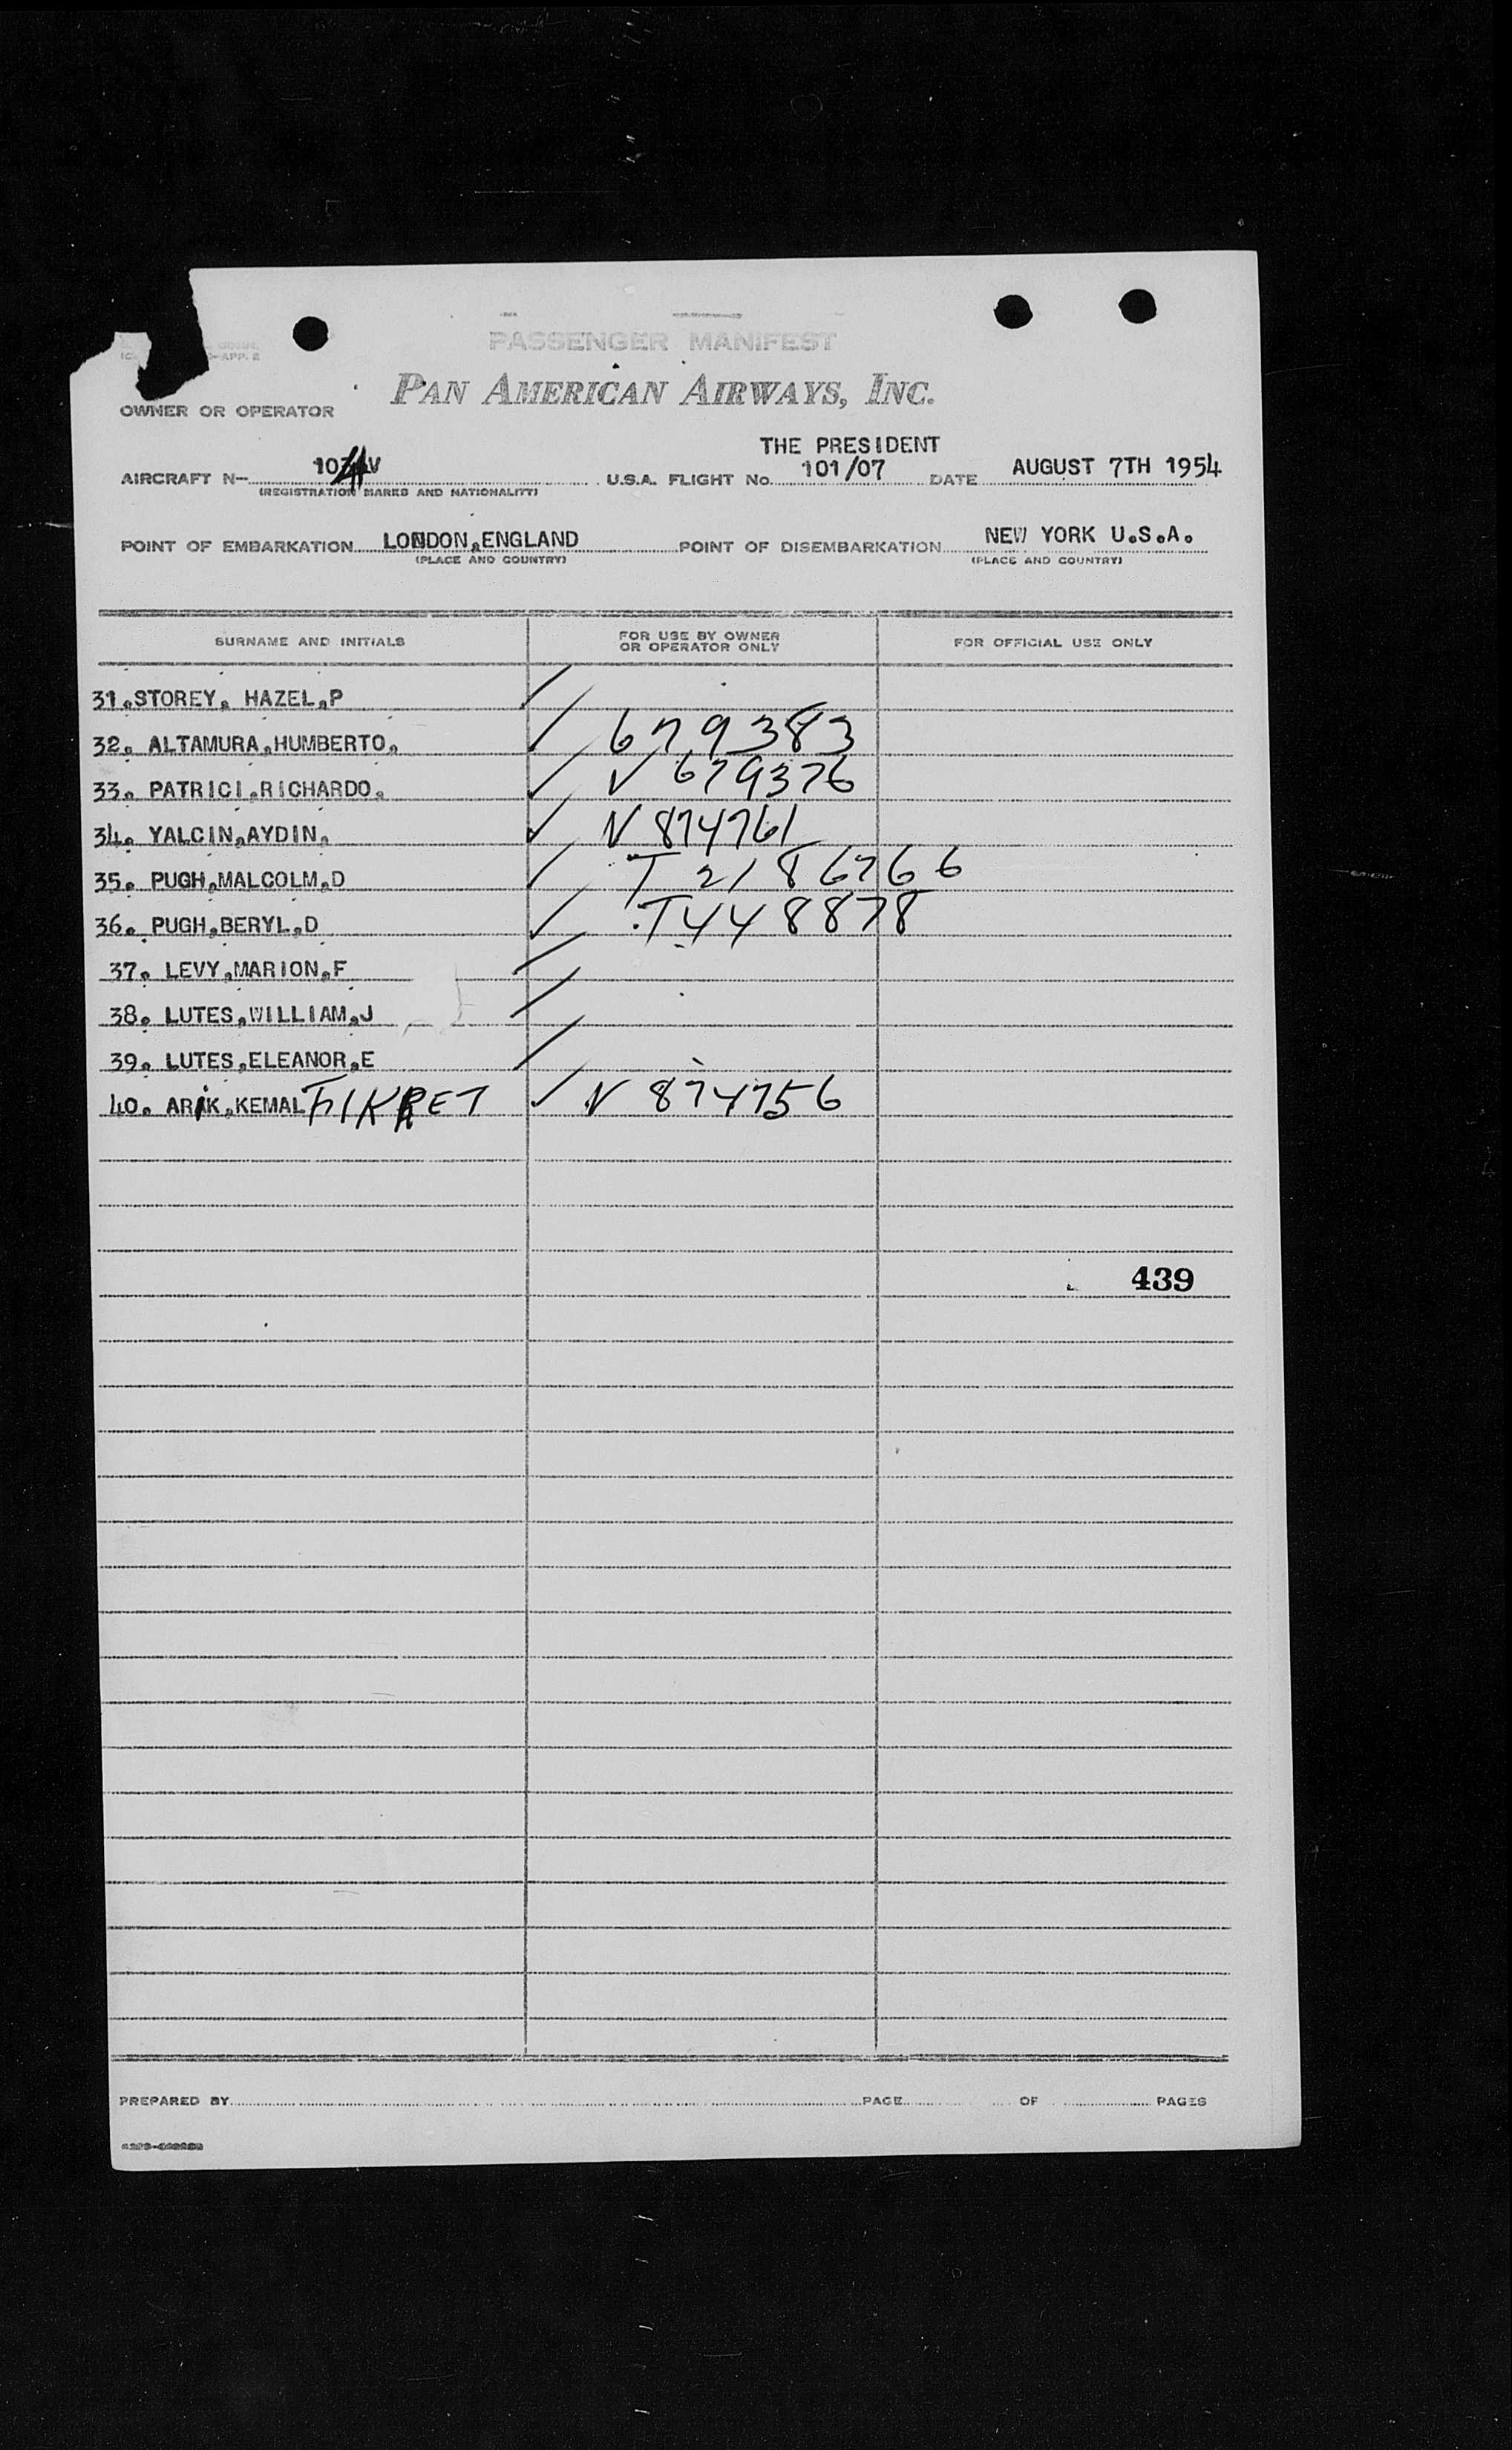 -APP. 2
PASSENGER MANIFEST
OWNER OR OPERATOR PAN AMERICAN AIRWAYS, INC.
THE PRESIDENT
AIRCRAFT N- 1034V U.S.A. FLIGHT No. 101/07 DATE AUGUST 7TH 1954
(REGISTRATION MARKS AND NATIONALITY)
POINT OF EMBARKATION LONDON,ENGLAND POINT OF DISEMBARKATION NEW YORK U.S.A.
(PLACE AND COUNTRY) (PLACE AND COUNTRY)
SURNAME AND INITIALS FOR USE BY OWNER OR OPERATOR ONLY FOR OFFICIAL USE ONLY
31.STOREY, HAZEL,P
32. ALTAMURA,HUMBERTO. 679383
33. PATRICI,RICHARDO. V 679376
34. YALCIN,AYDIN. V 874761
35. PUGH,MALCOLM,D T 2186766
36. PUGH,BERYL,D T448878
37. LEVY,MARION,F
38. LUTES,WILLIAM,J
39. LUTES,ELEANOR,E
40. ARIK,KEMAL FIKRET V 874756
439
PREPARED BY PAGE OF PAGES